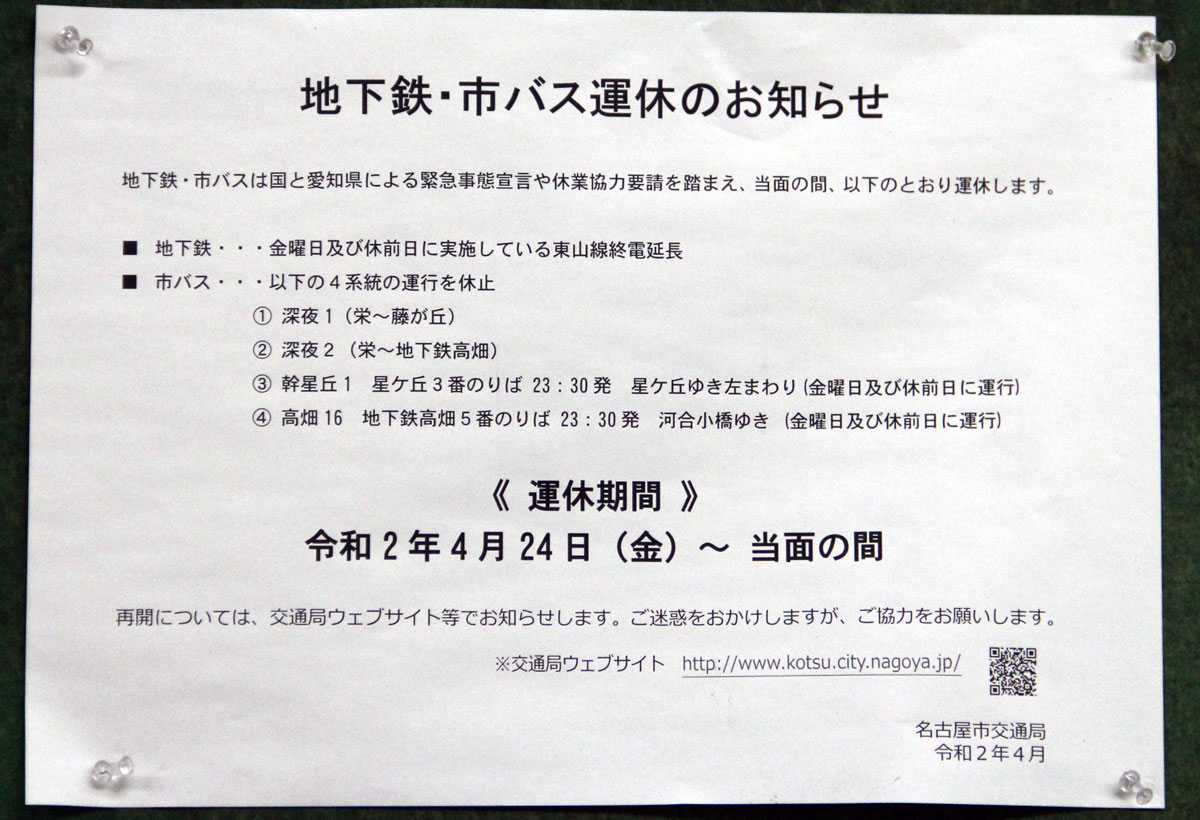 地下鉄・市バス運休のお知らせ
地下鉄・市バスは国と愛知県による緊急事態宣言や休業協力要請を踏まえ、当面の間、以下のとおり運休します。
■ 地下鉄・・・金曜日及び休前日に実施している東山線終電延長
■ 市バス・・・以下の４系統の運行を休止
① 深夜１（栄～藤が丘）
② 深夜２（栄～地下鉄高畑）
③ 幹星丘１　星ケ丘３番のりば 23：30発　星ケ丘ゆき左まわり(金曜日及び休前日に運行)
④ 高畑16　地下鉄高畑５番のりば 23：30発　河合小橋ゆき (金曜日及び休前日に運行)
《 運休期間 》
令和２年４月24日（金）～ 当面の間
再開については、交通局ウェブサイト等でお知らせします。ご迷惑をおかけしますが、ご協力をお願いします。
※交通局ウェブサイト　http://www.kotsu.city.nagoya.jp/
名古屋市交通局
令和２年４月